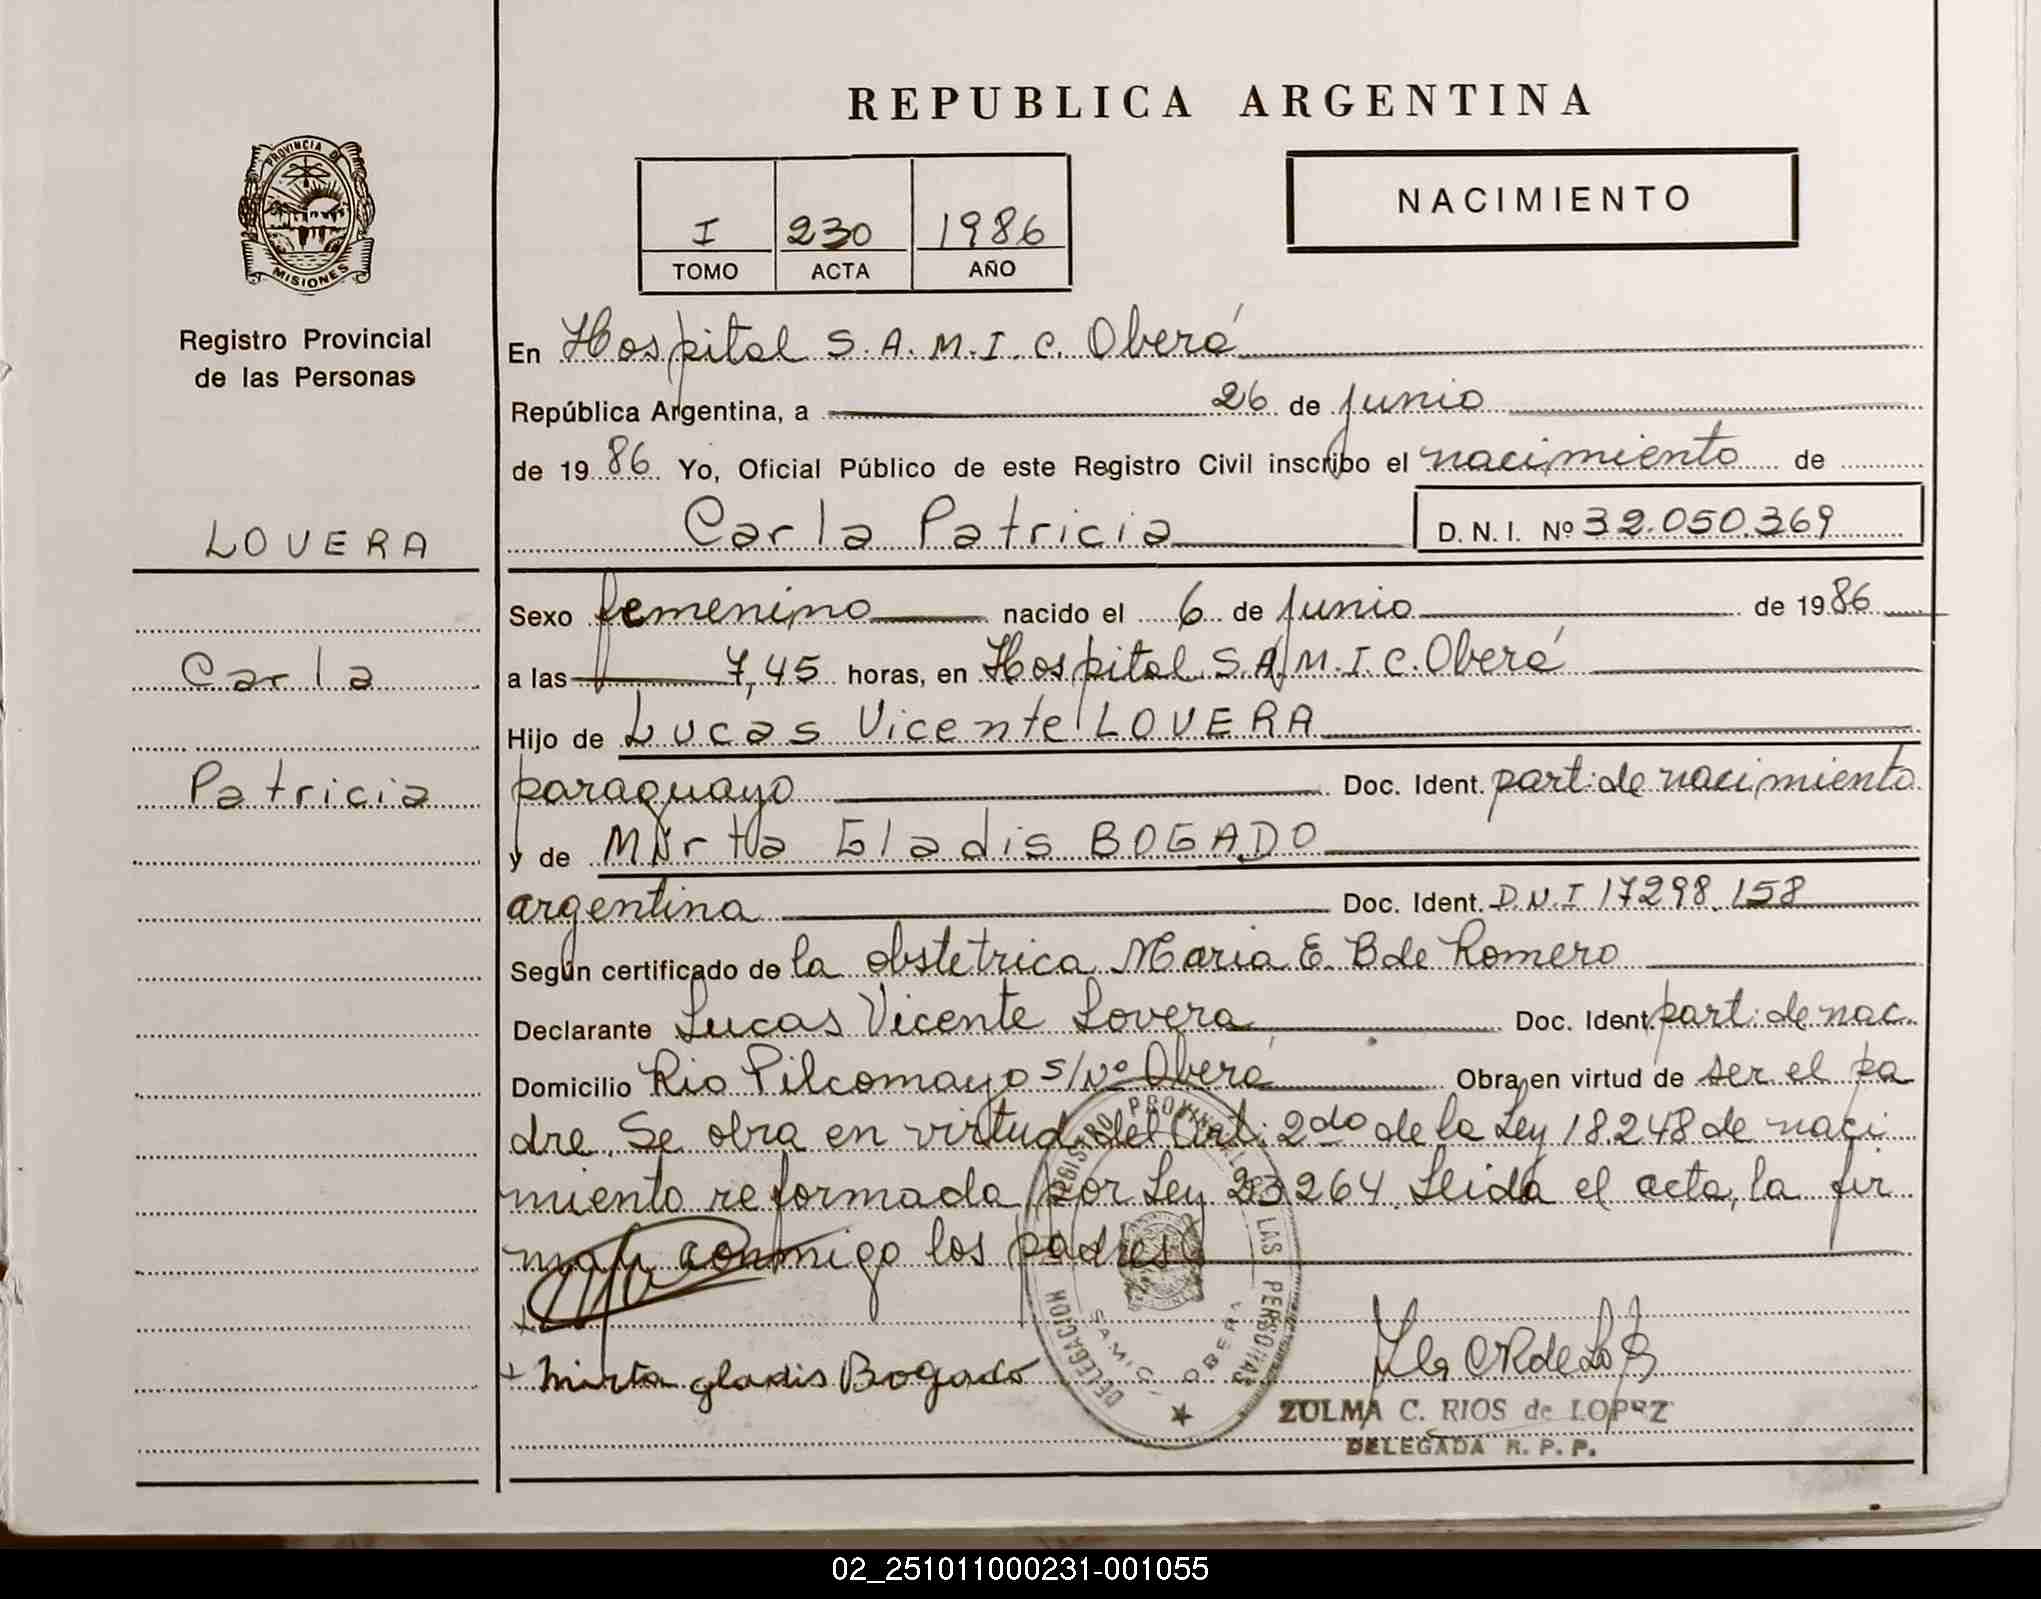 REPUBLICA ARGENTINA
PROVINCIA DE
MISIONES
Registro Provincial
de las Personas
I 230 1986
TOMO ACTA AÑO
NACIMIENTO
En Hospital S.A.M.I.C. Oberá
República Argentina, a 26 de junio
de 1986 Yo, Oficial Público de este Registro Civil inscribo el nacimiento de
Carla Patricia D. N. I. Nº 32.050.369
LOVERA
Carla
Patricia
Sexo femenino nacido el 6 de junio de 1986
a las 7,45 horas, en Hospital S.A.M.I.C. Oberá
Hijo de Lucas Vicente LOVERA
paraguayo Doc. Ident. part. de nacimiento
y de Mirta Gladis BOGADO
argentina Doc. Ident. D.N.I 17298.158
Según certificado de la obstetrica Maria E. B de Romero
Declarante Lucas Vicente Lovera Doc. Ident. part. de nac.
Domicilio Rio Pilcomayo s/Nº Oberá Obra en virtud de ser el pa
dre. Se obra en virtud del Art. 2do de la Ley 18.248 de naci
miento reformada por Ley 23264. Leida el acta, la fir
man conmigo los padres
+ Mirta gladis Bogado
DELEGACION REGISTRO PROVINCIAL DE LAS PERSONAS
SAMIC. OBERA
ZULMA C. RIOS de LOPEZ
DELEGADA R. P. P.
02_251011000231-001055